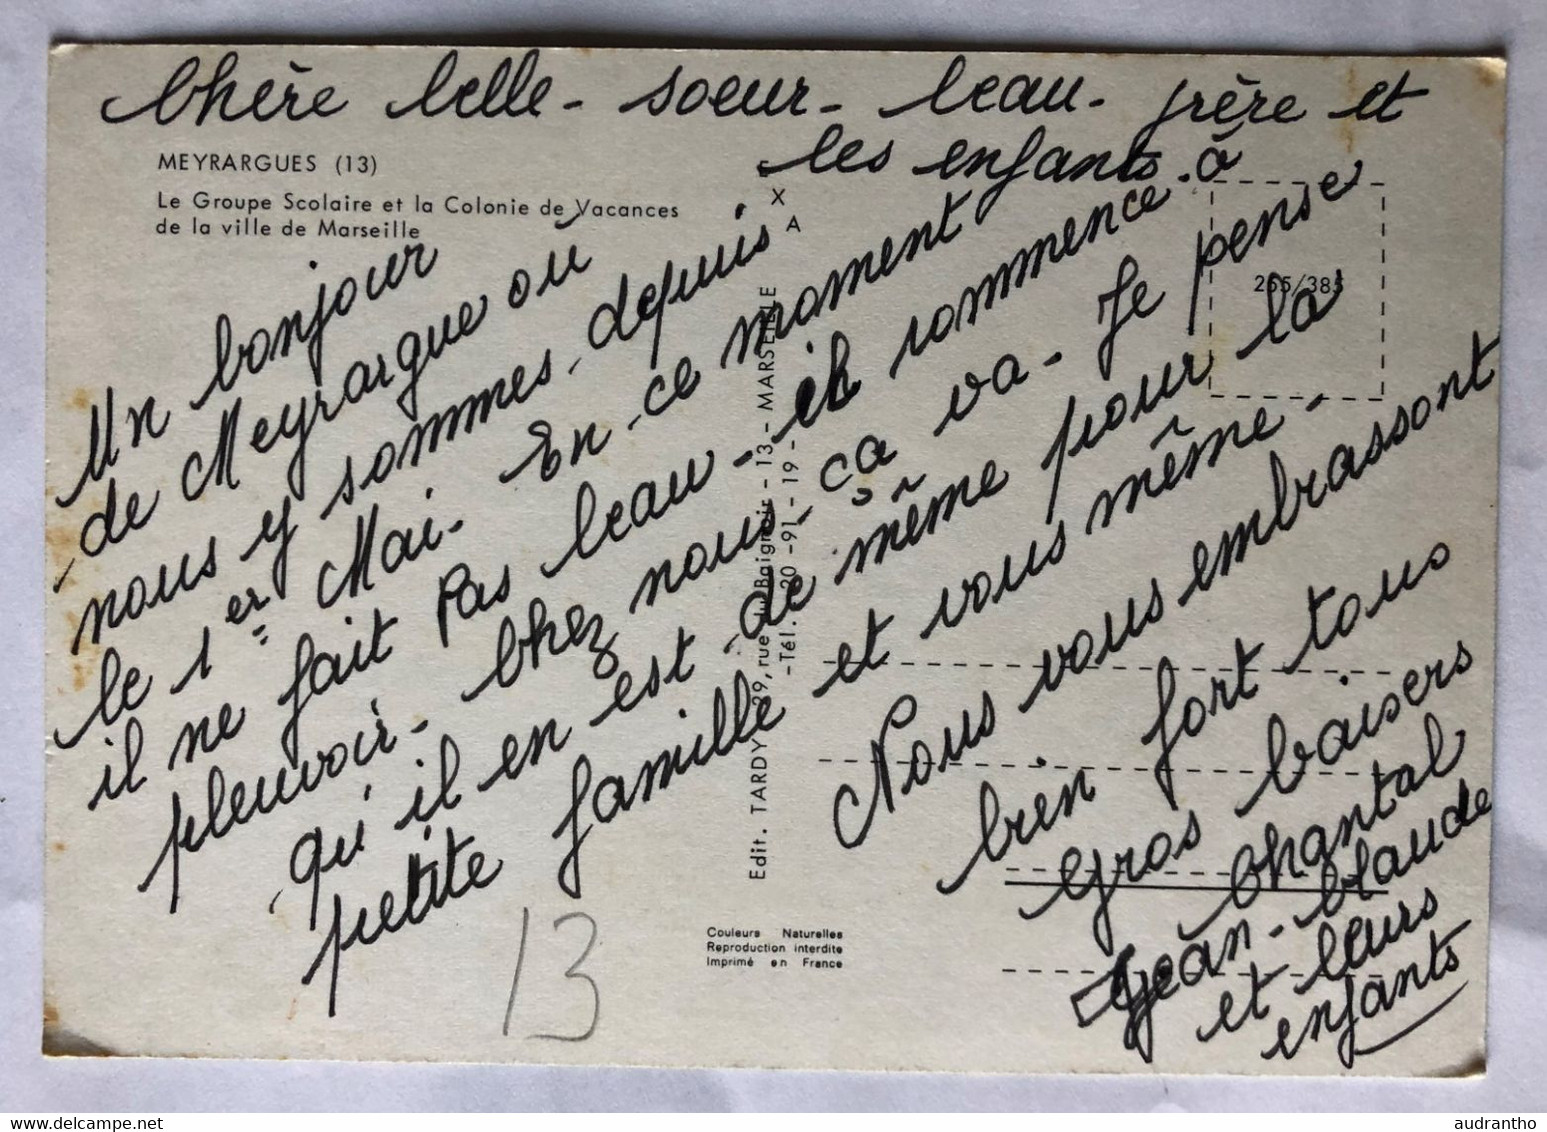 Chère belle-soeur-beau-frère et
les enfants.
MEYRARGUES (13)
Le Groupe Scolaire et la Colonie de Vacances
de la ville de Marseille
Un bonjour
de Meyrargue où
nous y sommes depuis
le 1er Mai. En ce moment
il ne fait pas beau - il commence à
pleuvoir. Chez nous ça va. Je pense
qu'il en est de même pour la
petite famille et vous même.
Nous vous embrassont
bien fort tous
Gros baisers
Chantal
Jean-Claude
et leurs
enfants
13
X
A
255/385
Edit. TARDY, 29, rue du Baignoir - 13 - MARSEILLE
- Tél. 20-91-19 -
Couleurs Naturelles
Reproduction interdite
Imprimé en France
audrantho